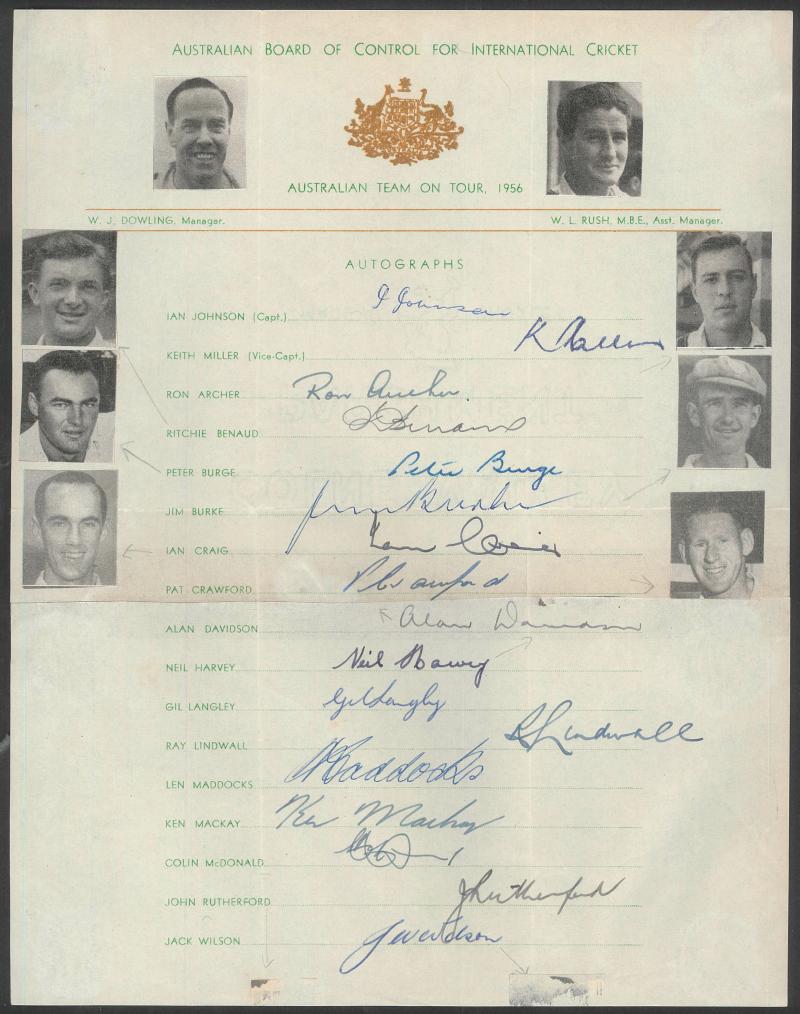 AUSTRALIAN BOARD OF CONTROL FOR INTERNATIONAL CRICKET
AUSTRALIAN TEAM ON TOUR, 1956
W. J. DOWLING, Manager.
W. L. RUSH, M.B.E., Asst. Manager.
AUTOGRAPHS
IAN JOHNSON (Capt.) I Johnson
KEITH MILLER (Vice-Capt.) K Miller
RON ARCHER Ron Archer.
RITCHIE BENAUD R Benaud
PETER BURGE Peter Burge
JIM BURKE Jim Burke
IAN CRAIG Ian Craig
PAT CRAWFORD P Crawford
ALAN DAVIDSON Alan Davidson
NEIL HARVEY Neil Harvey
GIL LANGLEY Gil Langley
RAY LINDWALL R Lindwall
LEN MADDOCKS L Maddocks
KEN MACKAY Ken Mackay
COLIN McDONALD
JOHN RUTHERFORD J Rutherford
JACK WILSON J Wilson